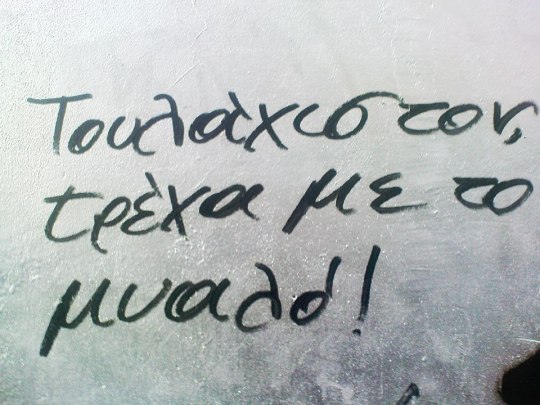 Τουλάχιστον,
τρέχα με το
μυαλό!